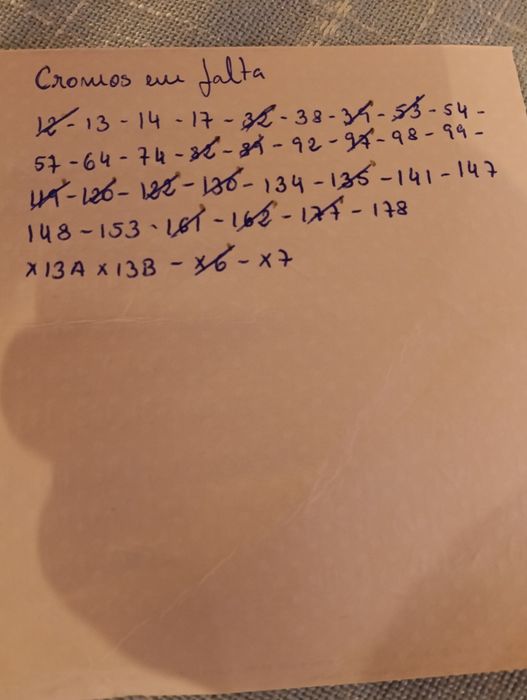 Cromos em falta
12 - 13 - 14 - 17 - 32 - 38 - 39 - 53 - 54 -
57 - 64 - 74 - 82 - 89 - 92 - 97 - 98 - 99 -
119 - 120 - 122 - 130 - 134 - 135 - 141 - 147
148 - 153 - 161 - 162 - 177 - 178
x13A x13B - x6 - x7